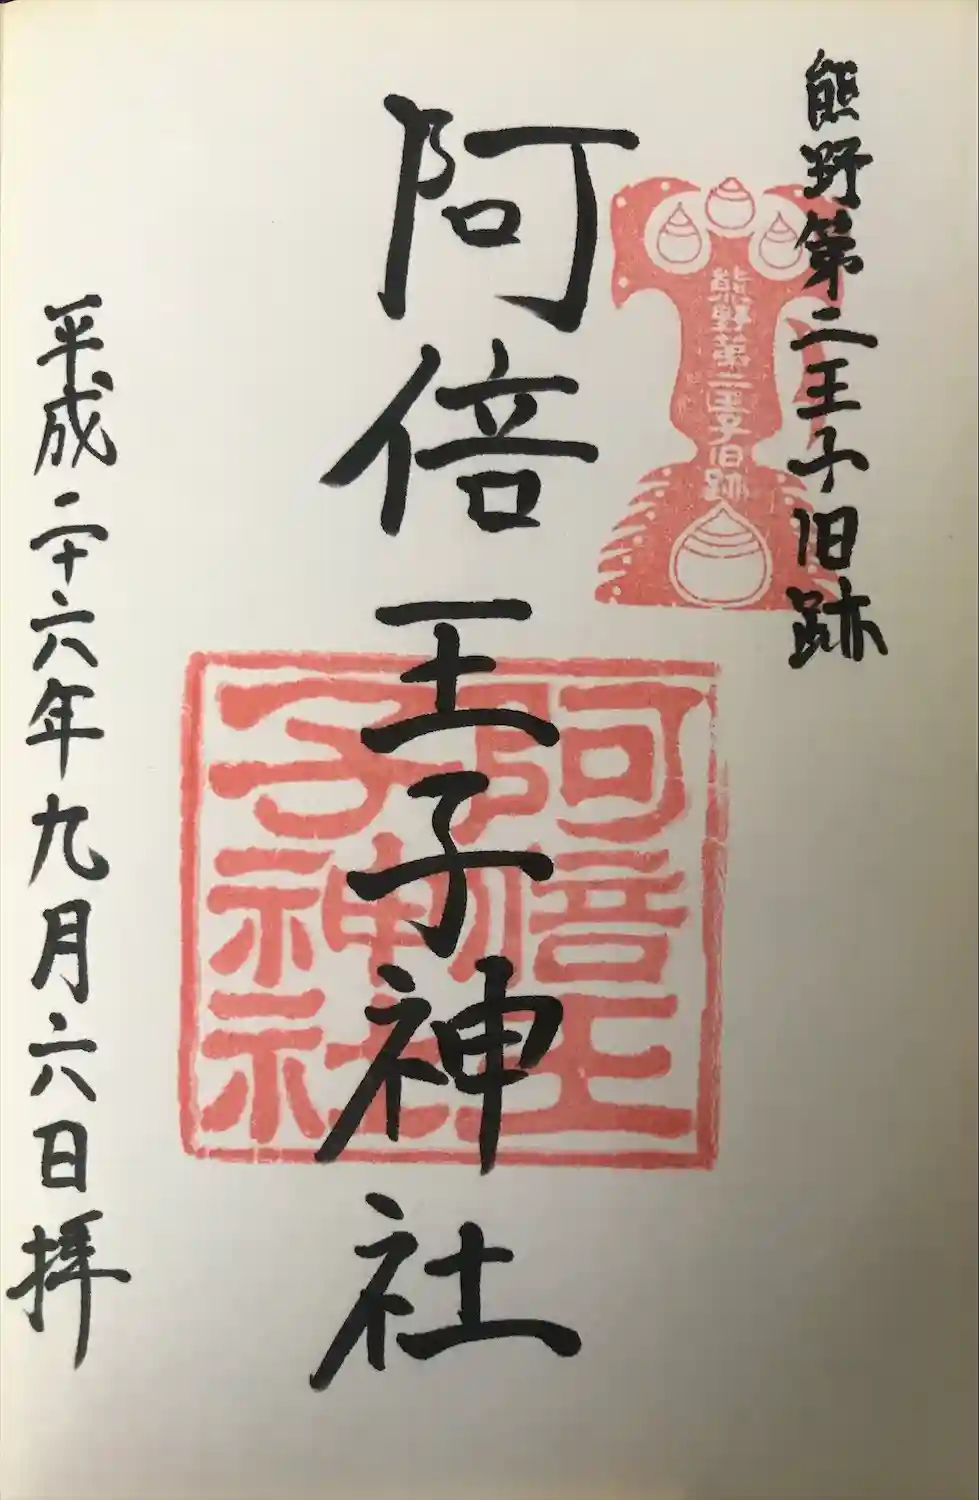 熊野第二王子旧跡
熊野第二王子旧跡
阿倍王子神社
阿倍王
子神社
平成二十六年九月六日拝